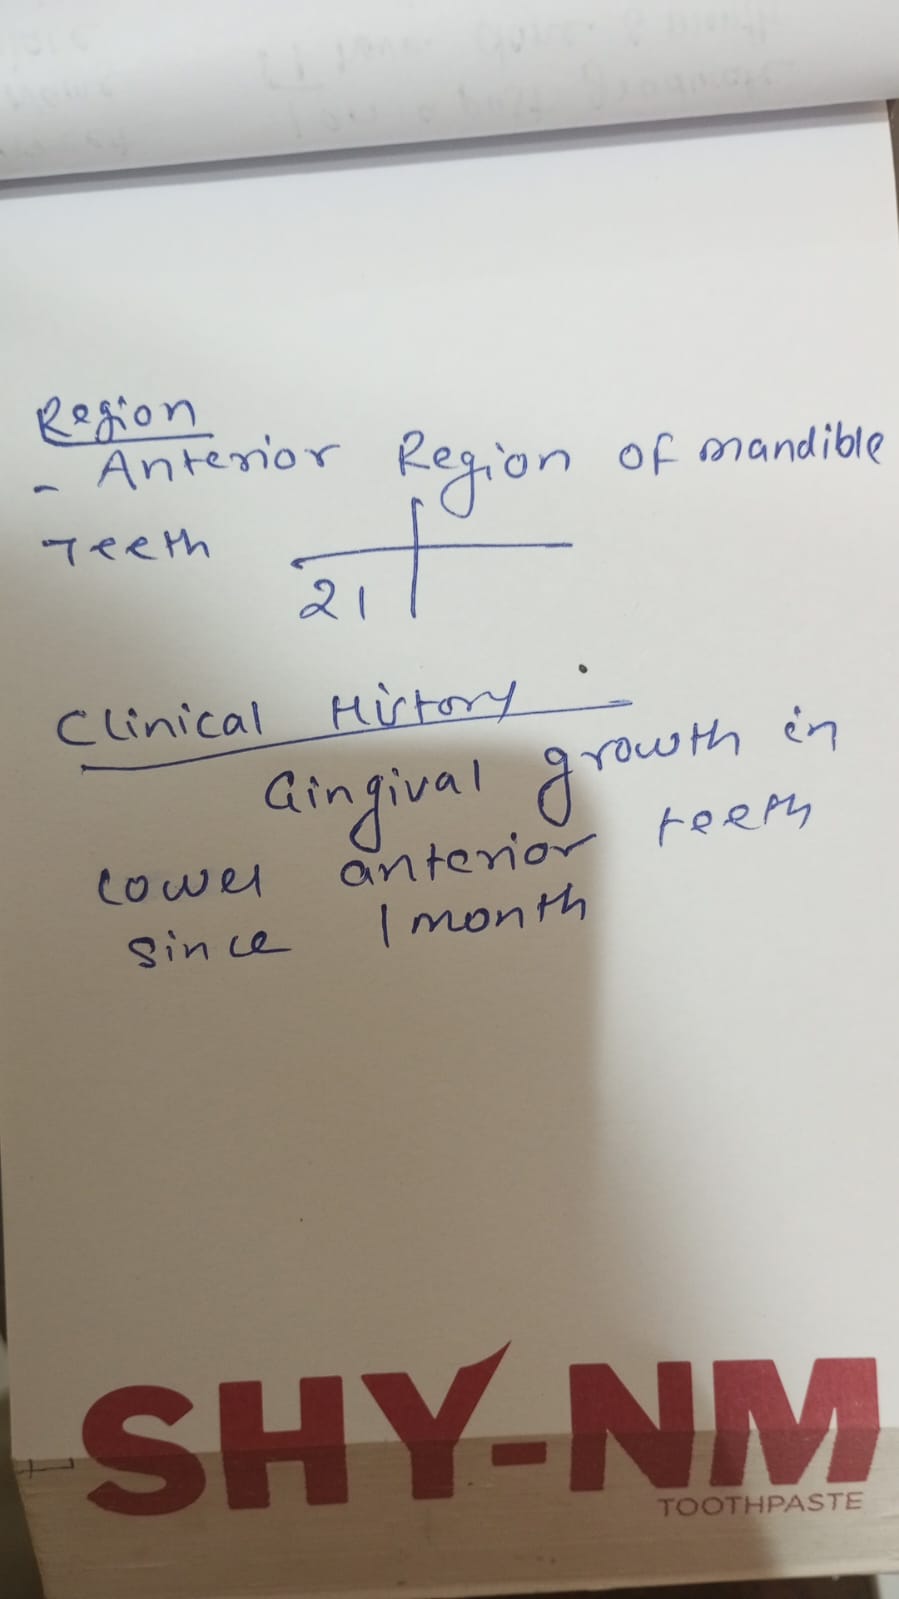 Region
- Anterior Region of mandible
Teeth
21
Clinical History
Gingival growth in
lower anterior teeth
since 1 month
SHY-NM
TOOTHPASTE